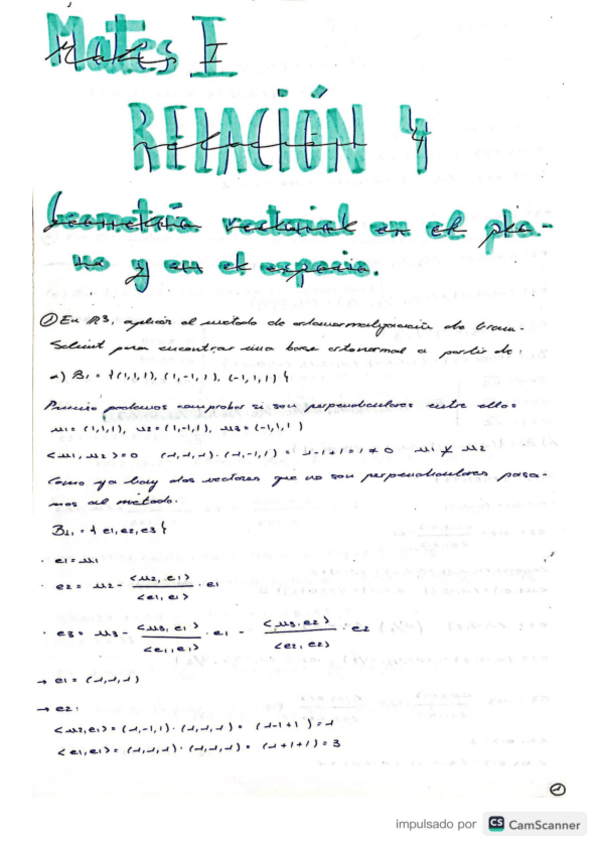 Mates I
RELACIÓN 4
Geometría vectorial en el pla-
no y en el espacio.
① En ℝ3, aplicar el método de ortonormalización de Gram-
Schmit para encontrar una base ortonormal a partir de:
a) B1 = {(1,1,1), (1,-1,1), (-1,1,1)}
Primero podemos comprobar si son perpendiculares entre ellos
u1 = (1,1,1), u2 = (1,-1,1), u3 = (-1,1,1)
<u1, u2> = 0 (1,1,1)·(1,-1,1) = 1-1+1 = 1 ≠ 0 u1 ⊥̸ u2
Como ya hay dos vectores que no son perpendiculares pasa-
mos al método.
B⊥ = {e1, e2, e3}
· e1 = u1
· e2 = u2 - <u2, e1> / <e1, e1> · e1
· e3 = u3 - <u3, e1> / <e1, e1> · e1 - <u3, e2> / <e2, e2> · e2
→ e1 = (1,1,1)
→ e2:
<u2, e1> = (1,-1,1)·(1,1,1) = (1-1+1) = 1
<e1, e1> = (1,1,1)·(1,1,1) = (1+1+1) = 3
①
impulsado por CS CamScanner